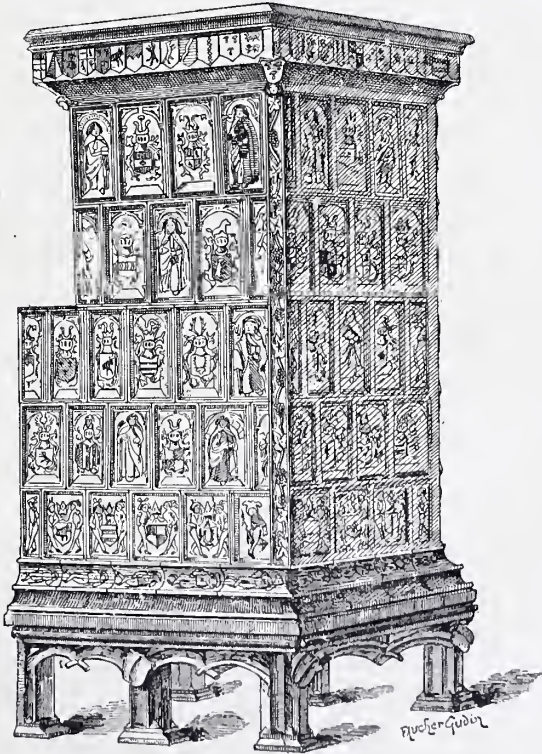 Faucher Gudin